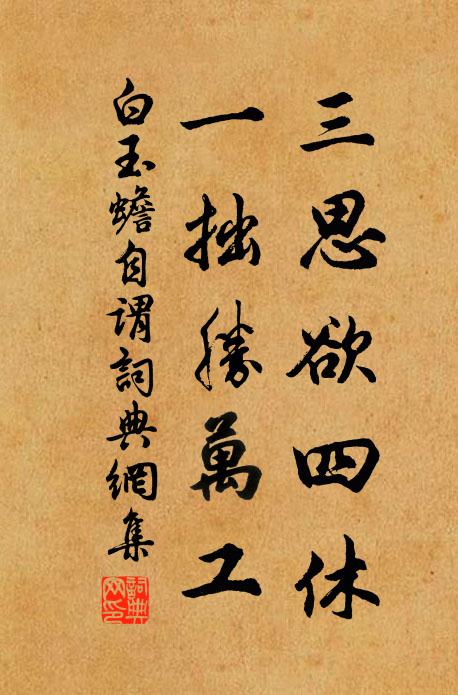 三思欲四休
一拙勝萬工
白玉蟾自謂詞典網集
詞典
网印